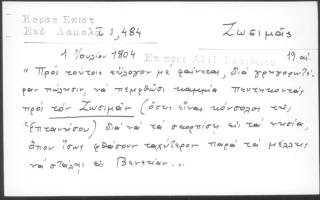 Κοραῆ Ἐπιστ
Ἔκδ Δαμαλᾶ 2, 484
Ζωσιμᾶς
1 Ἰουλίου 1804
" Πρὸς τούτοις εὔλογον μὲ φαίνεται, διὰ γρηγορωτέ-
ραν πώλησιν, νὰ πεμφθῶσι καμμία πεντηκοντὰς
πρὸς τὸν Ζωσιμᾶν (ὅστις εἶναι κόνσολος τῆς
Ἑπτανήσου) διὰ νὰ τὰ σκορπίσῃ εἰς τὰ νησία,
ὅπου ἴσως φθάσουν ταχύτερον παρὰ τὰ μέλλοντα
νὰ σταλῇ εἰς Βενετίαν. "